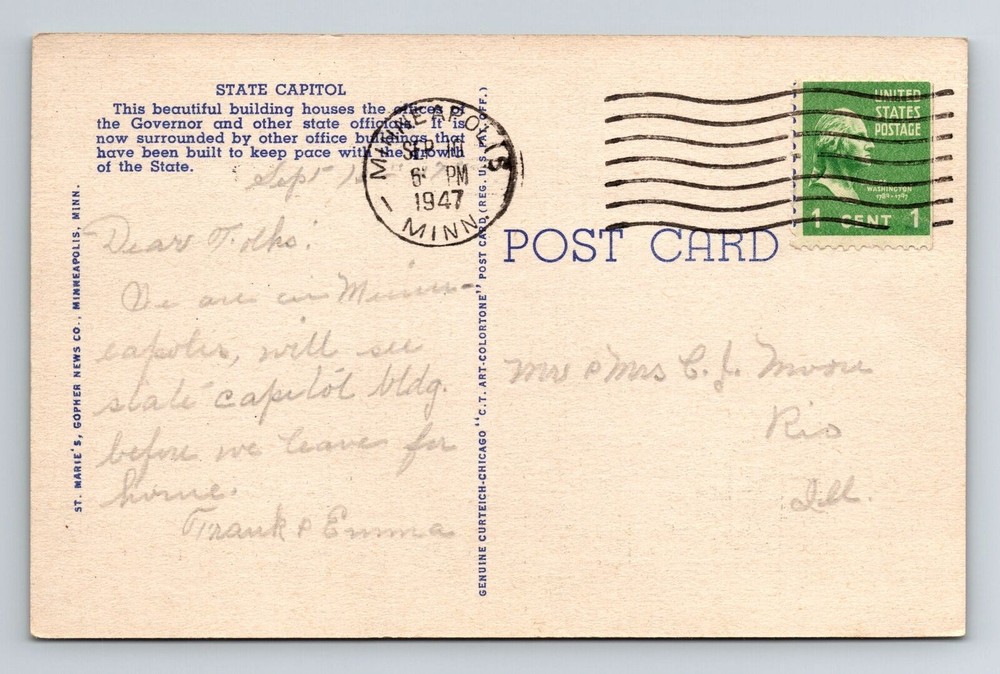 STATE CAPITOL
This beautiful building houses the offices of
the Governor and other state officials. It is
now surrounded by other office buildings that
have been built to keep pace with the growth
of the State.
Sept
Dear Folks.
We are in Minne-
apolis, will see
state capitol bldg.
before we leave for
home.
Frank & Emma
ST. MARIE'S, GOPHER NEWS CO., MINNEAPOLIS, MINN.
GENUINE CURTEICH-CHICAGO "C.T. ART-COLORTONE" POST CARD (REG. U.S. PAT. OFF.)
MINNEAPOLIS
SEP
6 PM
1947
MINN.
POST CARD
UNITED
STATES
POSTAGE
WASHINGTON
1789-1797
1 CENT 1
Mr & Mrs C. J. Moore
Rio
Ill.